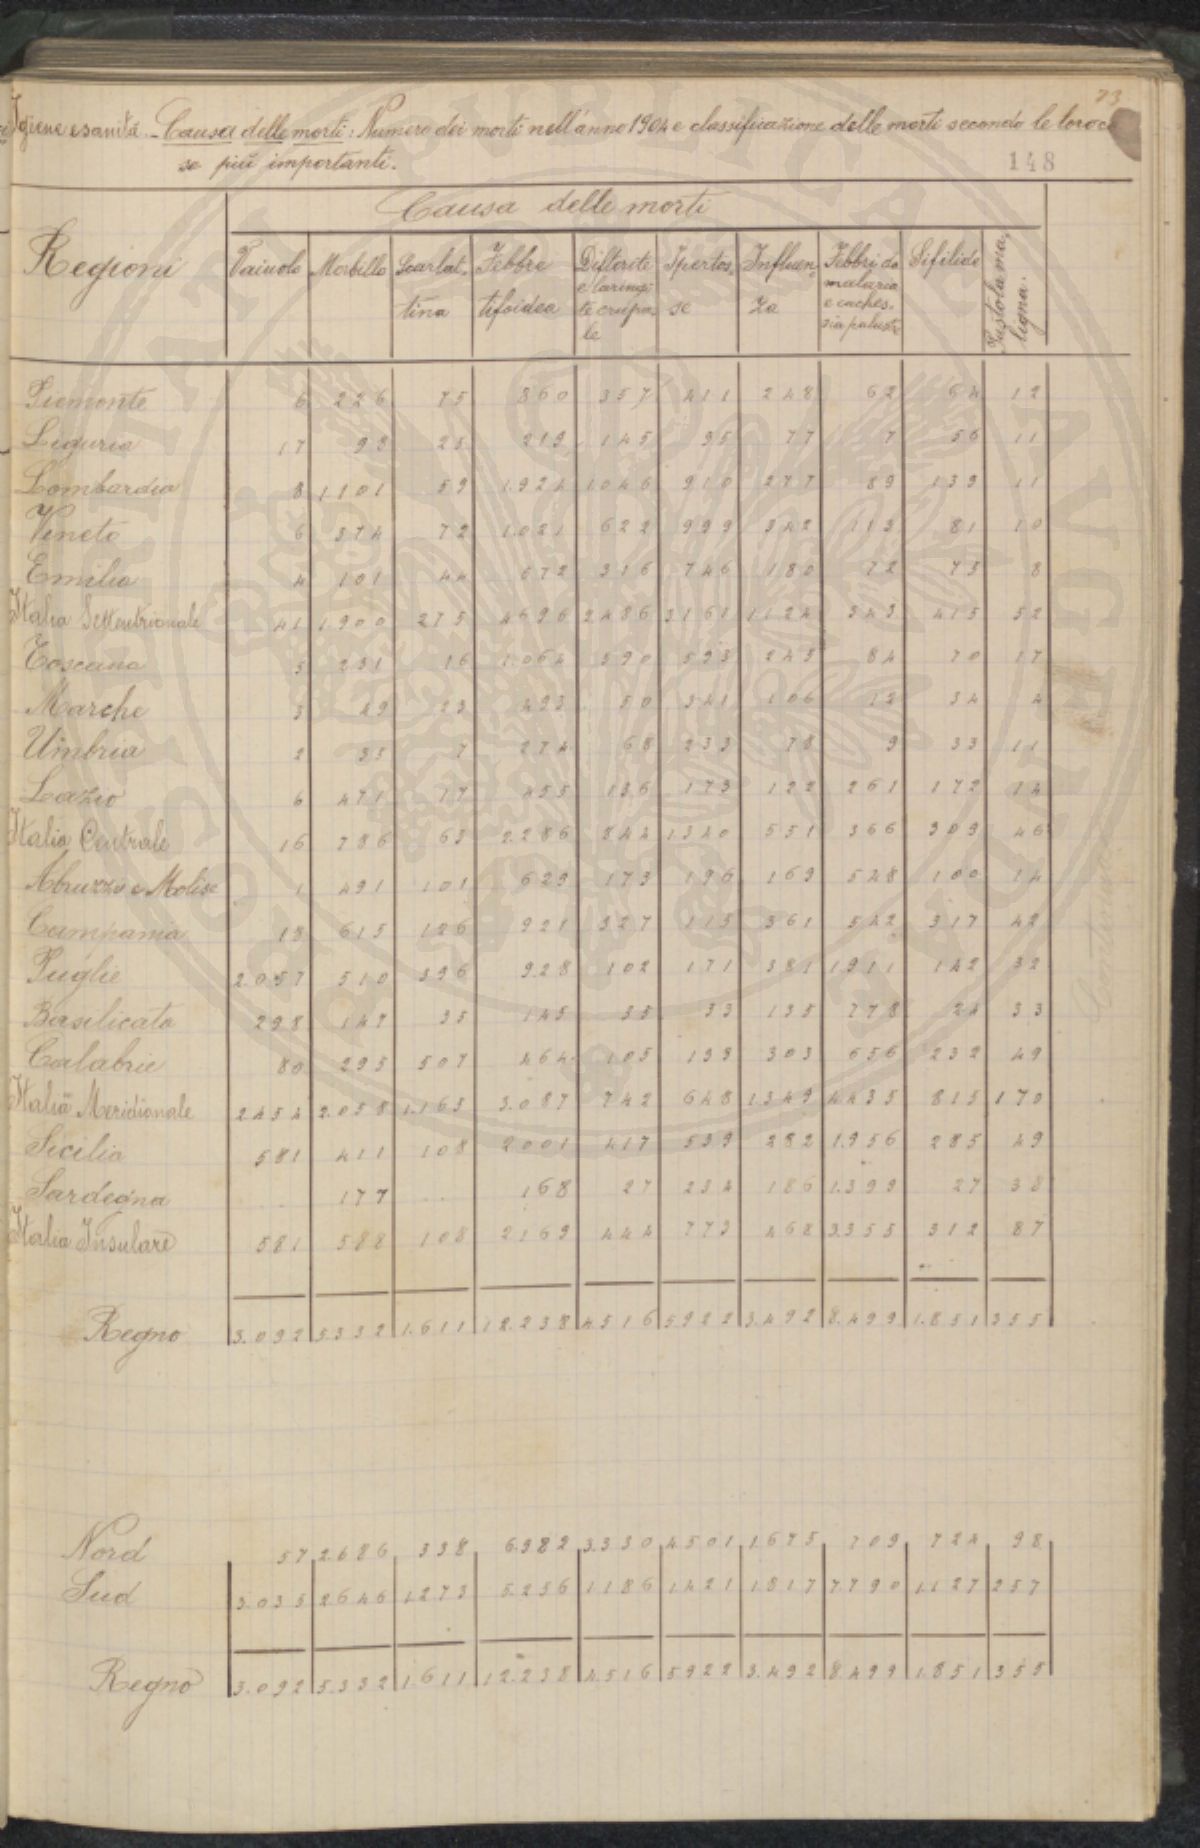 73
Igiene e sanità - Causa delle morti: Numero dei morti nell'anno 1904 e classificazione delle morti secondo le loro cau
se più importanti.
148
Causa delle morti
Regioni Vaiuolo Morbillo Scarlat- Febbre Difterite Ipertos- Influen- Febbri da Sifilide Pustola ma-
tina tifoidea e laringi- se za malaria ligna.
te crupa- e caches-
le sia palustre
Piemonte 6 226 75 860 357 411 248 62 64 12
Liguria 17 98 25 219 145 95 77 7 56 11
Lombardia 8 1.101 59 1.924 1046 910 277 89 139 11
Veneto 6 374 72 1.021 622 999 342 113 81 10
Emilia 4 101 44 672 316 746 180 72 75 8
Italia Settentrionale 41 1.900 275 4696 2486 3161 1.124 343 415 52
Toscana 5 231 16 1.064 590 593 245 84 70 17
Marche 3 49 23 493 50 341 106 12 34 4
Umbria 2 35 7 274 68 233 78 9 33 11
Lazio 6 471 17 455 136 173 122 261 172 14
Italia Centrale 16 786 63 2.286 844 1340 551 366 309 46
Abruzzo e Molise 1 491 101 629 173 196 169 548 100 14
Campania 18 615 126 921 327 115 361 542 317 42
Puglie 2.057 510 396 928 102 171 381 1.911 142 32
Basilicata 298 147 35 145 35 33 135 778 24 33
Calabrie 80 295 507 464 105 133 303 656 232 49
Italia Meridionale 2454 2.058 1.165 3.087 742 648 1.349 4435 815 170
Sicilia 581 411 108 2001 417 539 282 1.956 285 49
Sardegna .. 177 .. 168 27 234 186 1.399 27 38
Italia Insulare 581 588 108 2169 444 773 468 3.355 312 87
Regno 3.092 5.332 1.611 12.238 4516 5922 3.492 8.499 1.851 355
Nord 57 2.686 338 6.982 3.330 4501 1.675 709 724 98
Sud 3.035 2646 1273 5.256 1186 1421 1817 7.790 1.127 257
Regno 3.092 5.332 1.611 12.238 4516 5922 3.492 8.499 1.851 355